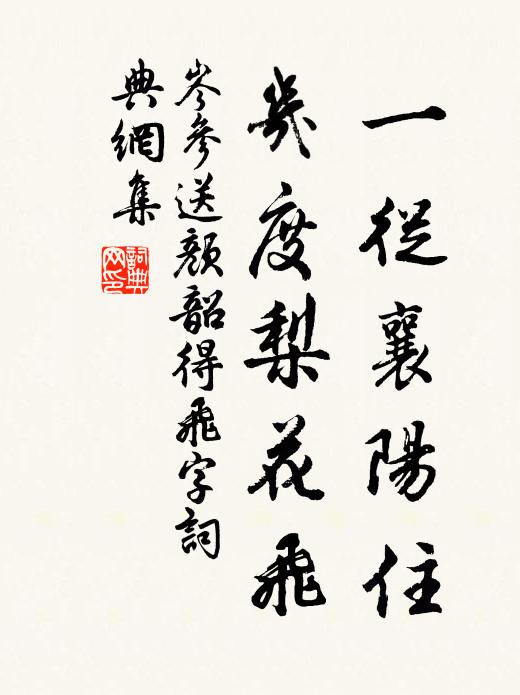 一從襄陽住
幾度梨花飛
岑參送顏韶得飛字詞
典網集
詞典網印